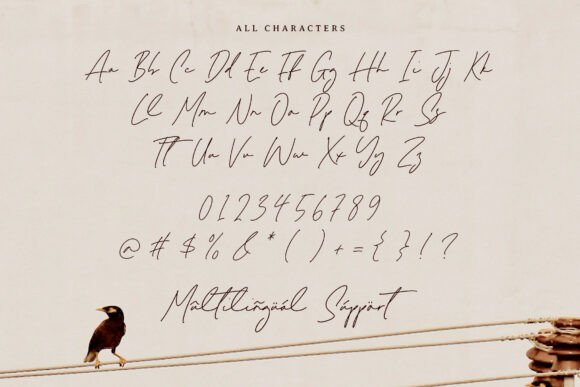 ALL CHARACTERS
Aa Bb Cc Dd Ee Ff Gg Hh Ii Jj Kk
Ll Mm Nn Oo Pp Qq Rr Ss
Tt Uu Vv Ww Xx Yy Zz
0123456789
@ # $ % & * ( ) + = { } ! ?
Múltilingüál Sáppört